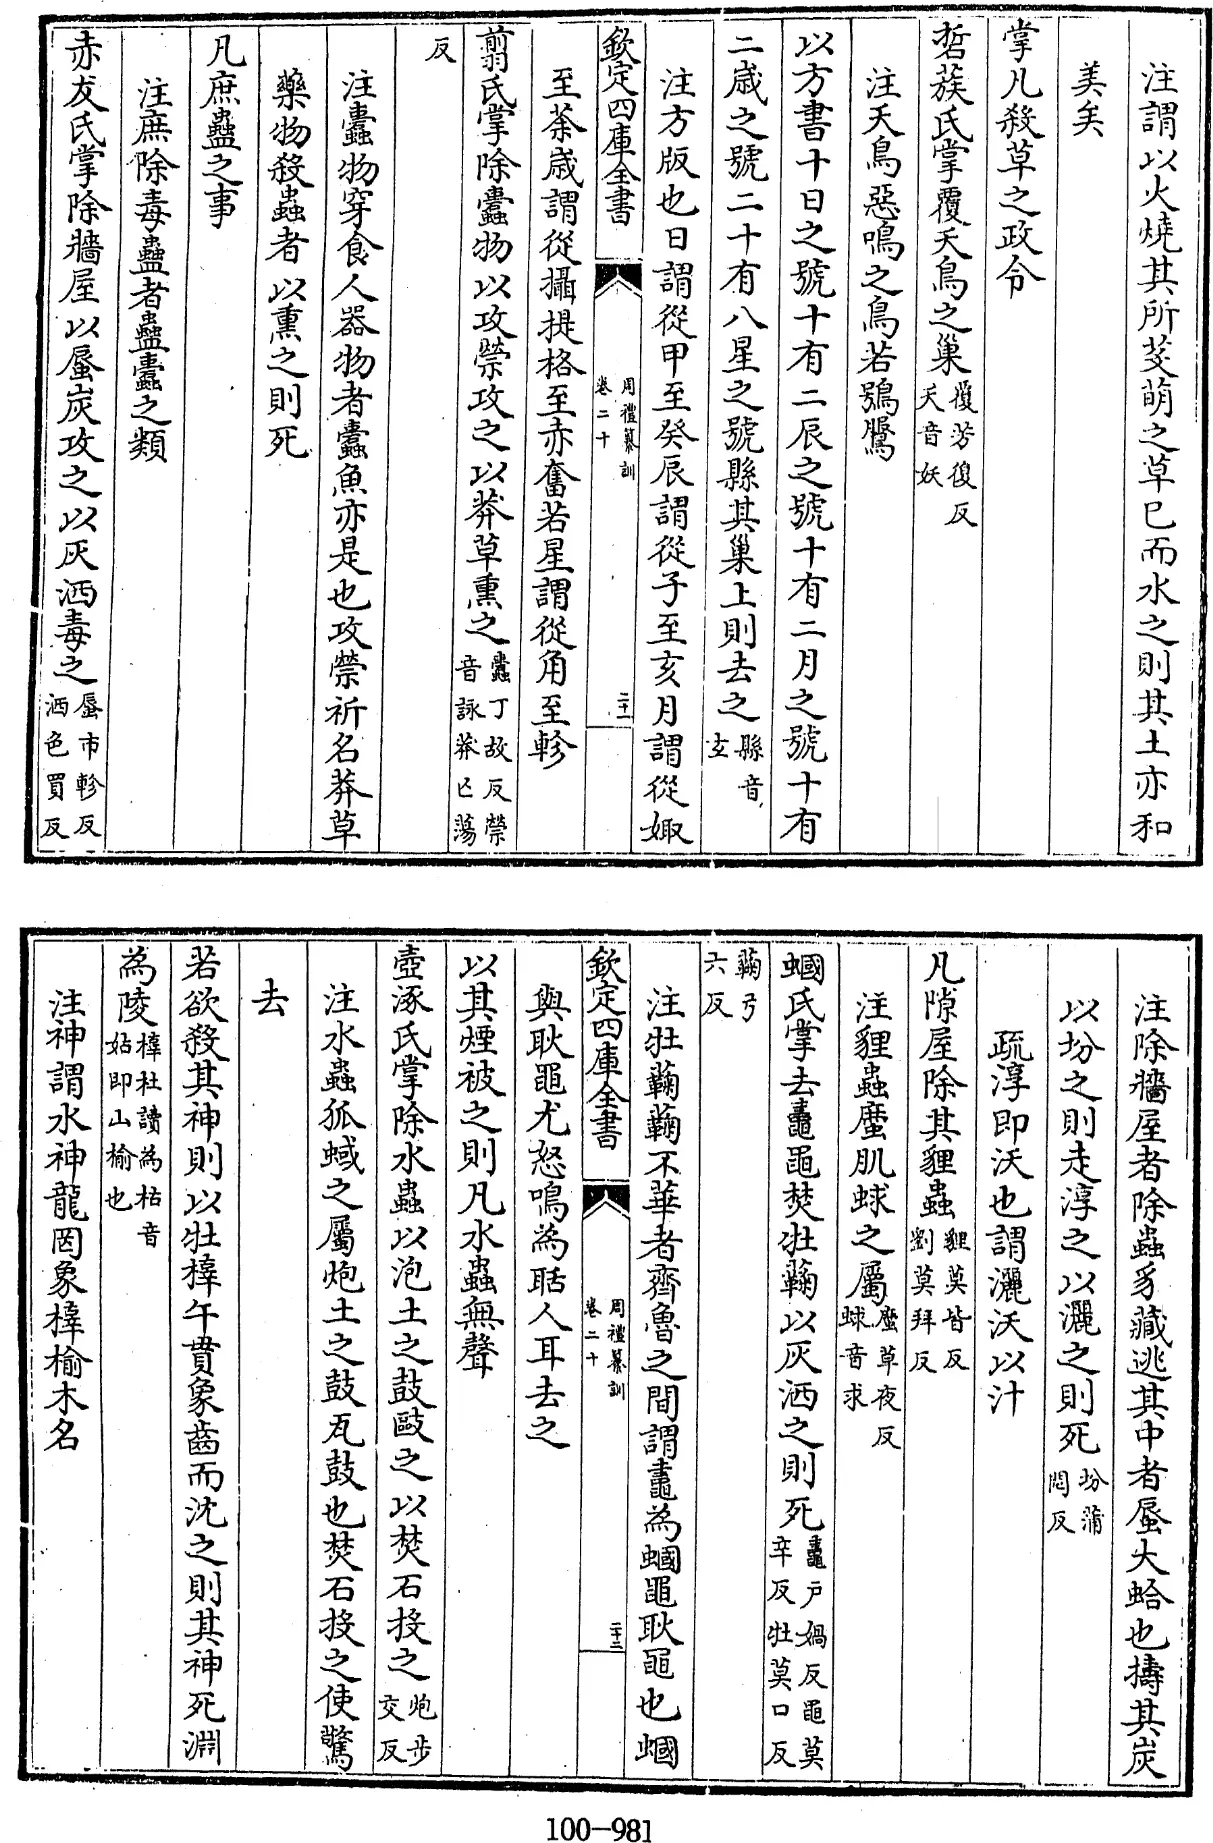 注謂以火燒其所芟萌之草已而水之則其土亦和
美矣
掌凡殺草之政令
硩蔟氏掌覆夭鳥之巢覆芳復反夭音妖
注夭鳥惡鳴之鳥若鴞鵩
以方書十日之號十有二辰之號十有二月之號十有
二歲之號二十有八星之號縣其巢上則去之縣音玄
注方版也日謂從甲至癸辰謂從子至亥月謂從娵
欽定四庫全書
周禮纂訓
卷二十
二十一
至荼歲謂從攝提格至赤奮若星謂從角至軫
翦氏掌除蠹物以攻禜攻之以莽草熏之蠹丁故反禜音詠莽亡蕩
反
注蠹物穿食人器物者蠹魚亦是也攻禜祈名莽草
藥物殺蟲者以熏之則死
凡庶蠱之事
注庶除毒蠱者蠱蠹之類
赤犮氏掌除牆屋以蜃炭攻之以灰洒毒之蜃市軫反洒色買反
注除牆屋者除蟲豸藏逃其中者蜃大蛤也擣其炭
以坋之則走淳之以灑之則死坋蒲悶反
疏淳即沃也謂灑沃以汁
凡隙屋除其貍蟲貍莫皆反劉莫拜反
注貍蟲䗪肌蛷之屬䗪草夜反蛷音求
蟈氏掌去鼃黽焚牡蘜以灰洒之則死鼃戸媧反黽莫幸反牡莫口反
蘜弓六反
注牡蘜蘜不華者齊魯之間謂鼃為蟈黽耿黽也蟈
欽定四庫全書
周禮纂訓
卷二十
二十二
與耿黽尤怒鳴為聒人耳去之
以其煙被之則凡水蟲無聲
壺涿氏掌除水蟲以炮土之鼓毆之以焚石投之炮步交反
注水蟲狐蜮之屬炮土之鼓瓦鼓也焚石投之使驚
去
若欲殺其神則以牡橭午貫象齒而沈之則其神死淵
為陵橭杜讀為枯音姑即山榆也
注神謂水神龍罔象橭榆木名
100-981